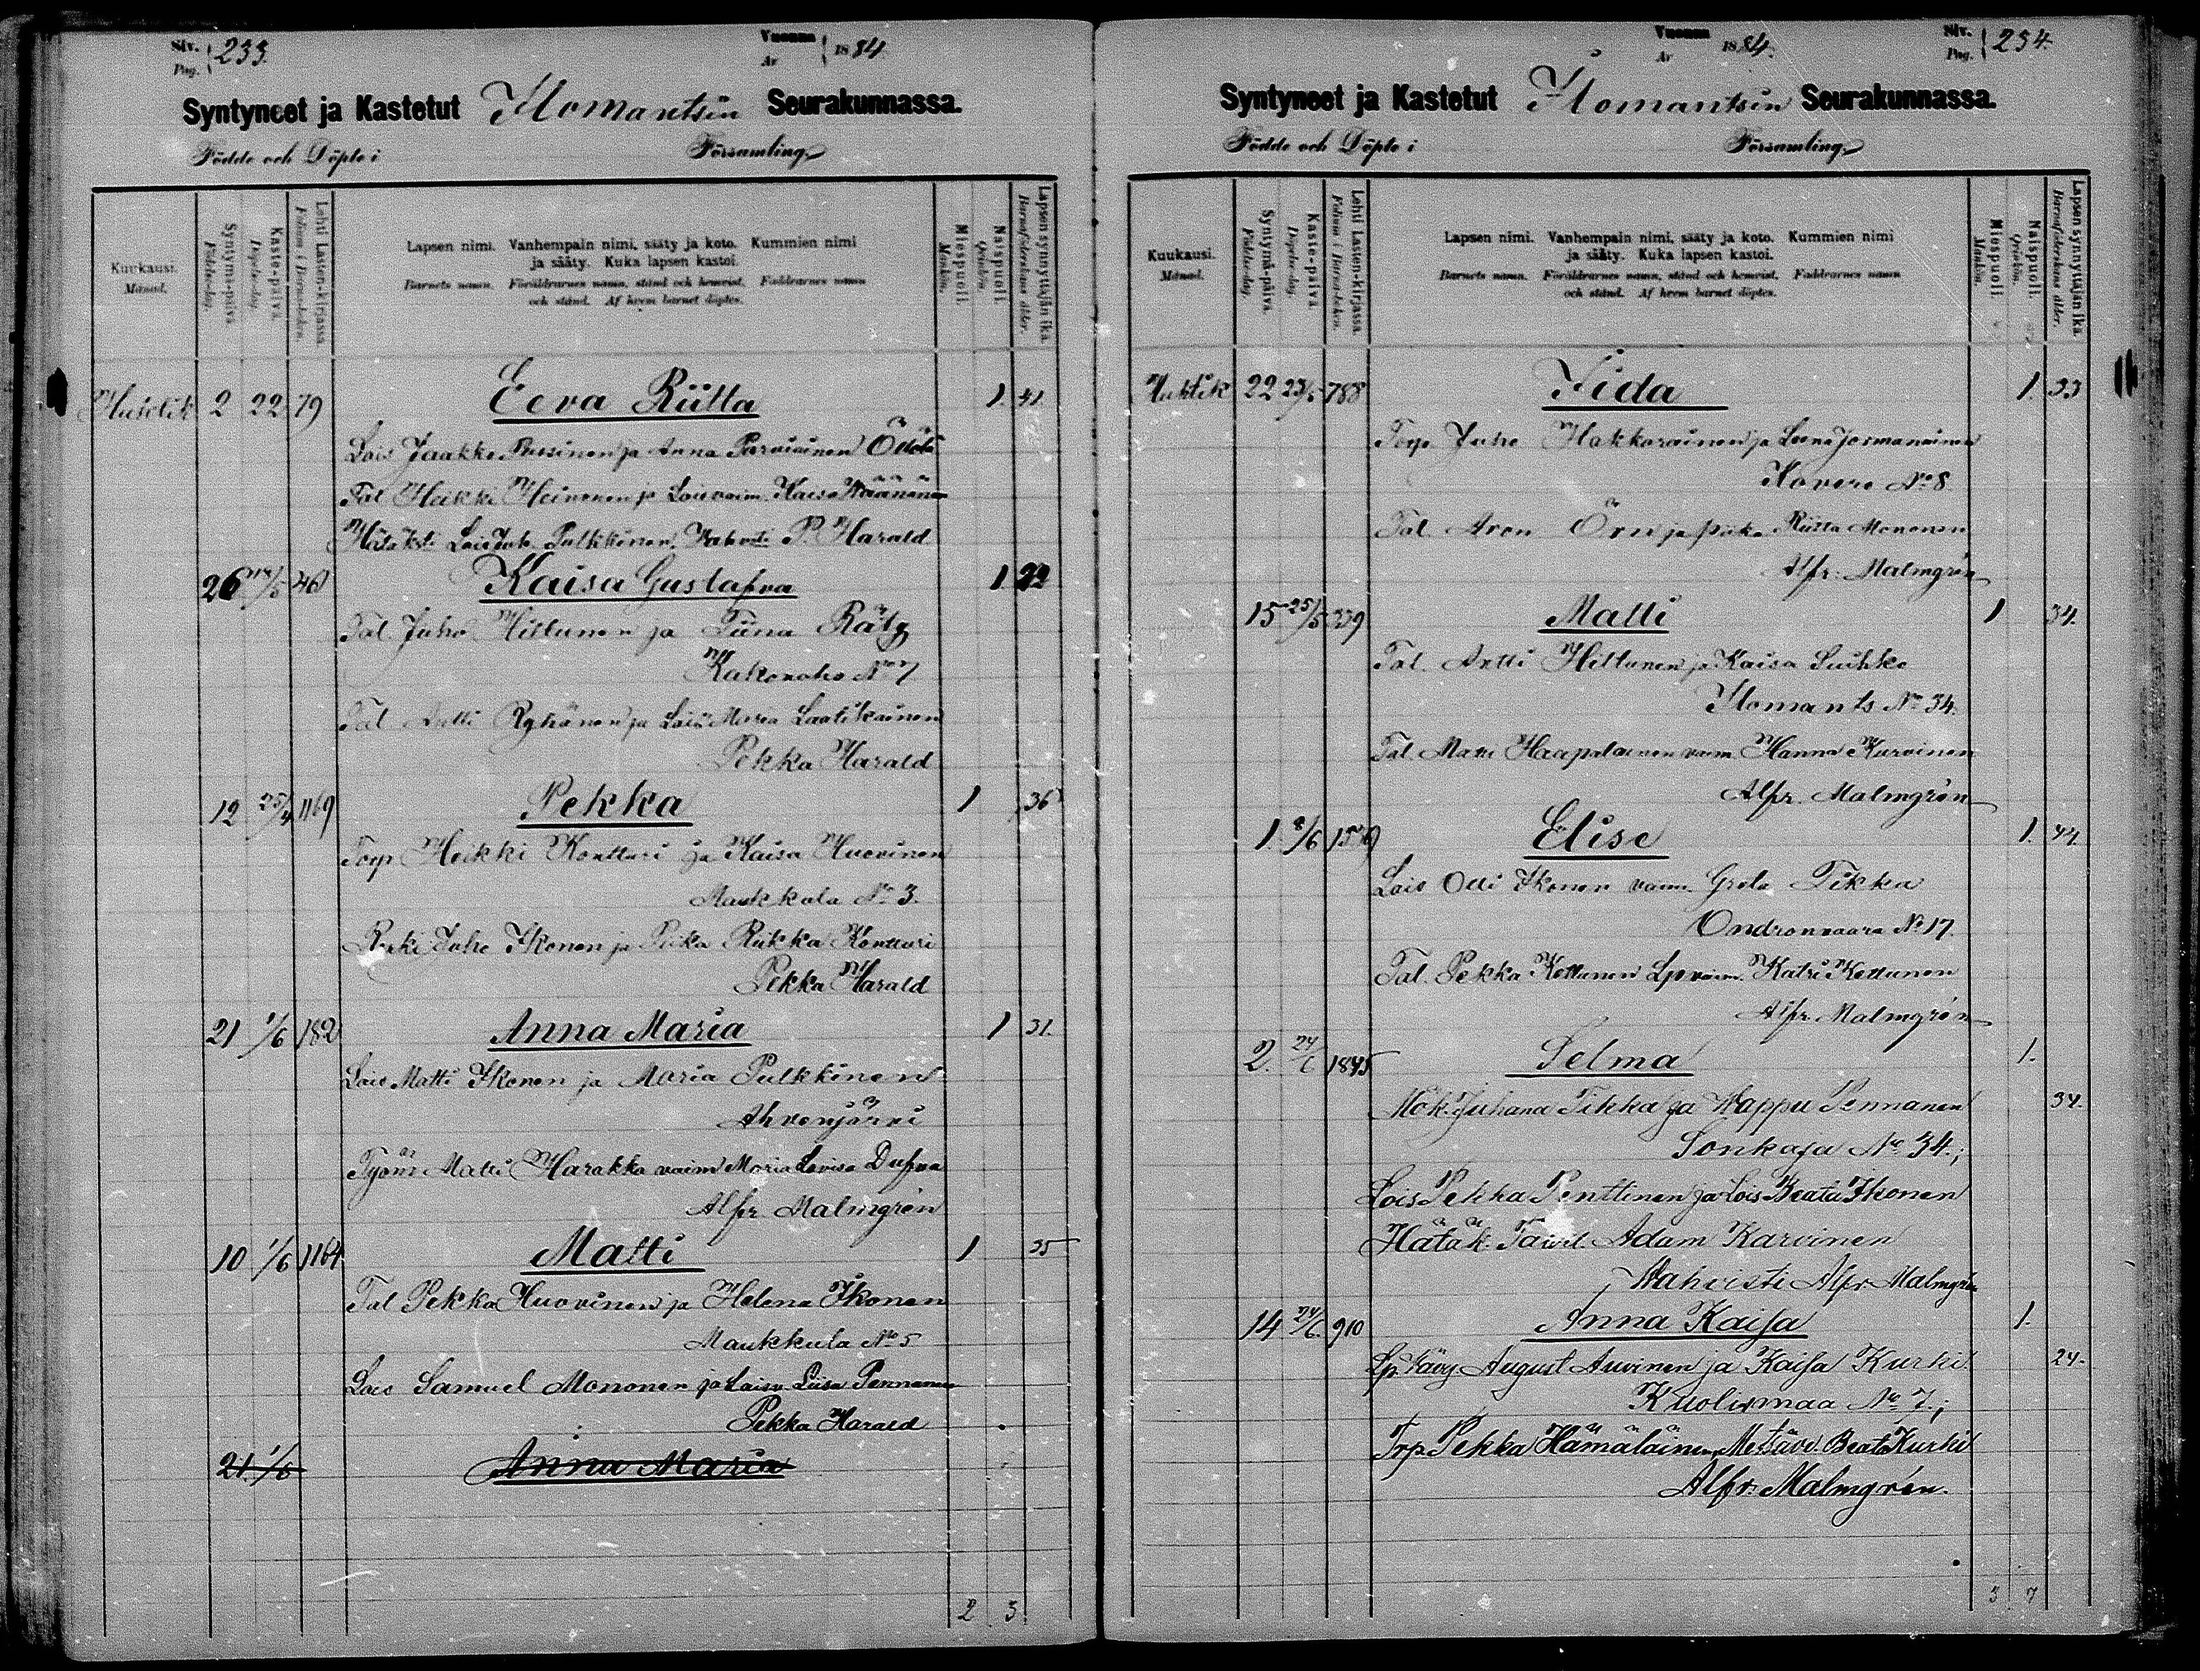 Siv. Pag. 233.
Vuonna År 1884
Syntyneet ja Kastetut Ilomantsin Seurakunnassa.
Födde och Döpte i Församling.
Kuukausi. Månad.
Syntymä-päivä. Födelse-dag.
Kaste-päivä. Döpelse-dag.
Lehti Lasten-kirjassa. Folium i Barna-boken.
Lapsen nimi. Vanhempain nimi, sääty ja koto. Kummien nimi
ja sääty. Kuka lapsen kastoi.
Barnets namn. Föräldrarnes namn, stånd och hemvist. Faddrarnes namn
och stånd. Af hvem barnet döptes.
Miespuoli. Mankön.
Naispuoli. Qvinkön.
Lapsen synnyttäjän ikä. Barnaföderskans ålder.
Huhtik 2 22 79 Eeva Riitta 1. 41
Lois Jaakko Pussinen ja Anna Parviainen
Tal Heikki Heinonen ja Lois vaim Kaisa Väänänen
Hätäkst. Lois Juh. Pulkkinen. Vahvisti P. Harald
26 461 Kaisa Gustafva 1 22
Tal. Juho Hiltunen ja Tiina Räty
Kakonaho No 7
Tal Antti Ryhänen ja Lois Maria Laatikainen
Pekka Harald
12 25/4 1169 Pekka 1 36
Torp Heikki Kontturi ja Kaisa Huovinen
Maukkula No 3.
Renki Juho Ikonen ja Piika Riikka Kontturi
Pekka Harald
21 1/6 182 Anna Maria 1 31.
Lois Matti Ikonen ja Maria Pulkkinen
Ahvenjärvi
Työm Matti Harakka vaim Maria Lovisa Dufva
Alfr. Malmgrén
10 1/6 1164 Matti 1 35
Tal Pekka Huovinen ja Helena Ikonen
Maukkula No 5
Lois Samuel Mononen ja Loisv Liisa Pennanen
Pekka Harald
21 1/6 Anna Maria
2 3
Vuonna År 1884.
Siv. Pag. 234.
Syntyneet ja Kastetut Ilomantsin Seurakunnassa.
Födde och Döpte i Församling.
Kuukausi. Månad.
Syntymä-päivä. Födelse-dag.
Kaste-päivä. Döpelse-dag.
Lehti Lasten-kirjassa. Folium i Barna-boken.
Lapsen nimi. Vanhempain nimi, sääty ja koto. Kummien nimi
ja sääty. Kuka lapsen kastoi.
Barnets namn. Föräldrarnes namn, stånd och hemvist. Faddrarnes namn
och stånd. Af hvem barnet döptes.
Miespuoli. Mankön.
Naispuoli. Qvinkön.
Lapsen synnyttäjän ikä. Barnaföderskans ålder.
Huhtik 22 25/5 788 Iida 1. 33
Torp Juho Hakkarainen ja Leena Jormanainen
Kovero No 8.
Tal. Aron Örn ja piika Riitta Mononen
Alfr. Malmgrén
15 25/5 339 Matti 1 34.
Tal. Antti Hiltunen ja Kaisa Suihko
Ilomants No 34.
Tal. Matti Haapalainen vaim Hanna Kurvinen
Alfr. Malmgrén
1. 8/6 Elise 1. 44.
Lois Olli Ikonen vaim. Greta Tikka
Ondronvaara No 17.
Tal. Pekka Kettunen Lpvaim. Katri Kettunen
Alfr. Malmgrén
2. 24/6 1845 Selma 1.
Mök. Juhana Tikka ja Wappu Pennanen 34.
Sonkaja No 34.;
Lois Pekka Penttinen ja Lois Beata Ikonen
Hätäk. Adam Karvinen
Wahvisti Alfr. Malmgrén
14 24/6 910 Anna Kaisa 1.
Lp. Vävy August Auvinen ja Kaisa Kurki 24.
Kuolismaa No 7.;
Trp Pekka Hämäläinen, Beata Kurki
Alfr. Malmgrén.
3 7